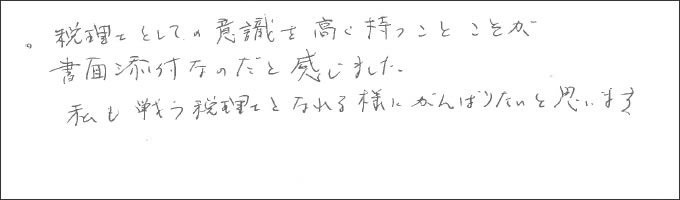 。税理士としての意識を高く持つことこそが
書面添付なのだと感じました。
私も戦う税理士となれる様にがんばりたいと思います